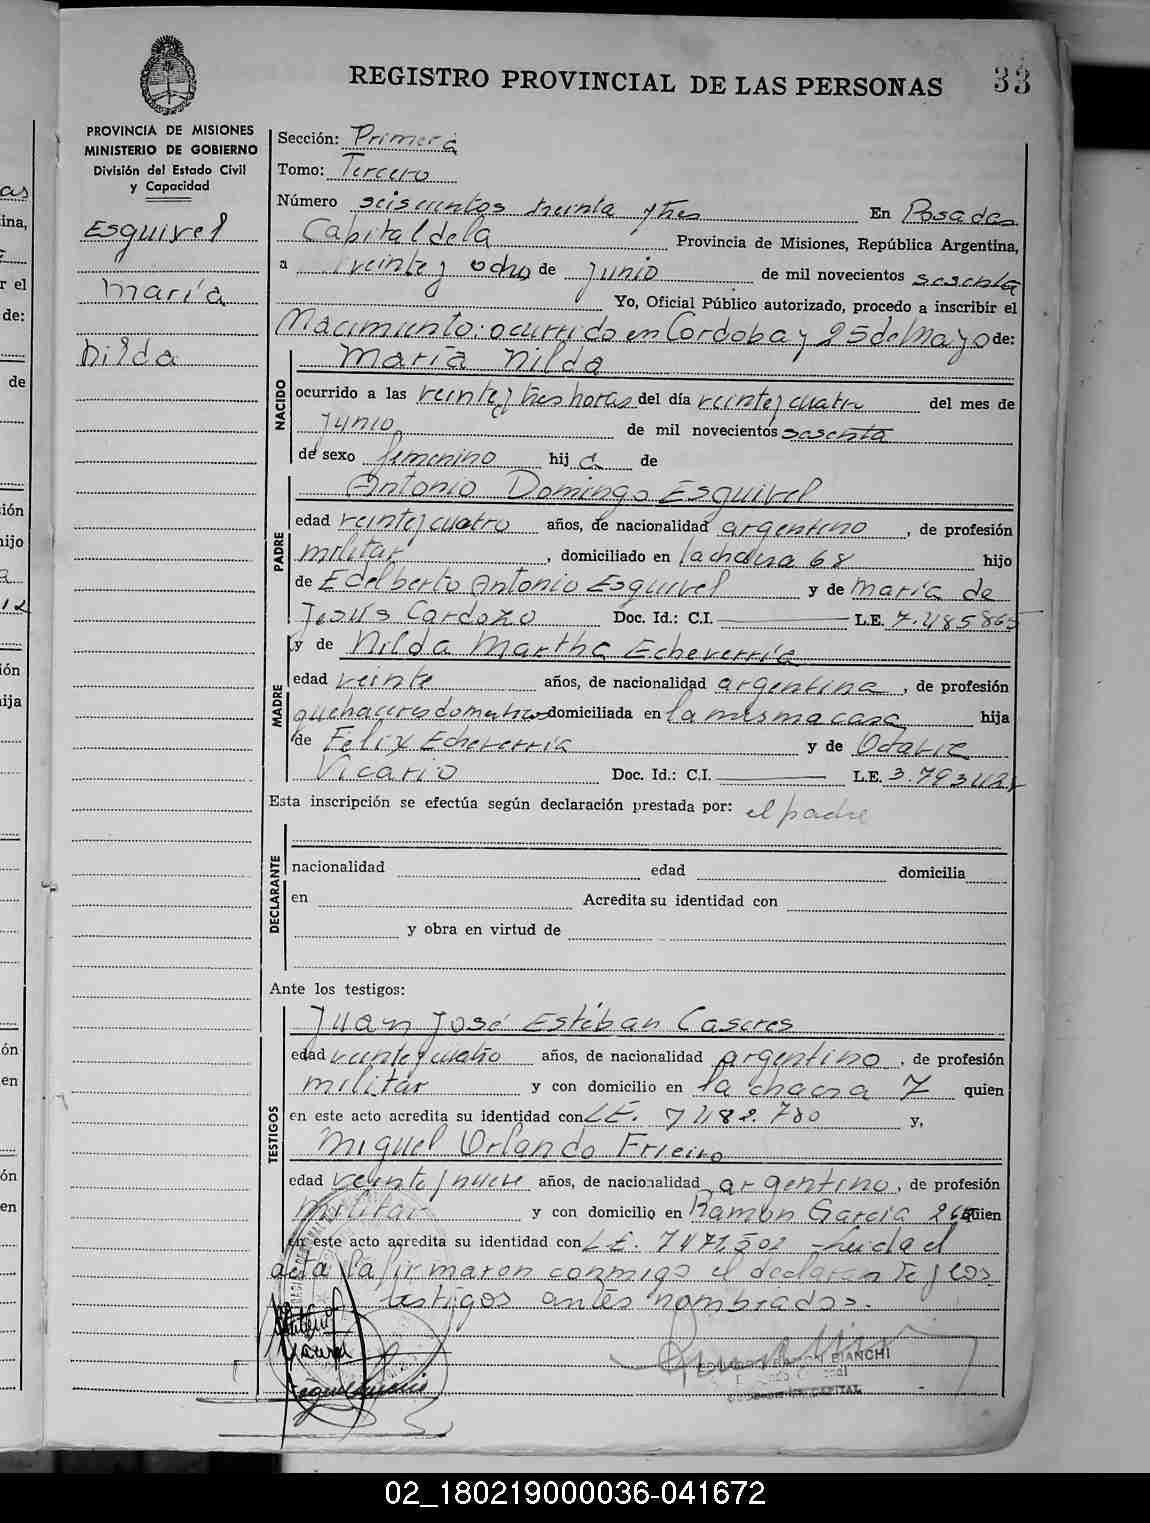 33
REGISTRO PROVINCIAL DE LAS PERSONAS
PROVINCIA DE MISIONES
MINISTERIO DE GOBIERNO
División del Estado Civil
y Capacidad
Esquivel
María
Nilda
Sección: Primera
Tomo: Tercero
Número seiscientos treinta y tres En Posadas
Capital de la Provincia de Misiones, República Argentina,
a veinte y ocho de junio de mil novecientos sesenta
Yo, Oficial Público autorizado, procedo a inscribir el
Nacimiento: ocurrido en Cordoba y 25 de Mayo de:
María Nilda
NACIDO
ocurrido a las veinte y tres horas del día veinte y cuatro del mes de
junio de mil novecientos sesenta
de sexo femenino hij a de
PADRE
Antonio Domingo Esquivel
edad veinte y cuatro años, de nacionalidad argentino, de profesión
militar, domiciliado en la chacra 68 hijo
de Edelberto Antonio Esquivel y de María de
Jesús Cardozo Doc. Id.: C.I. L.E. 7.485865
MADRE
y de Nilda Martha Echeverría
edad veinte años, de nacionalidad argentina, de profesión
quehaceres domesticos domiciliada en la misma casa hija
de Felix Echeverría y de
Vicario Doc. Id.: C.I. L.E. 3.793
Esta inscripción se efectúa según declaración prestada por: el padre
DECLARANTE
nacionalidad edad domicilia
en Acredita su identidad con
y obra en virtud de
Ante los testigos:
TESTIGOS
Juan José Estéban Caseres
edad veinte y cuatro años, de nacionalidad argentino, de profesión
militar y con domicilio en la chacra 7 quien
en este acto acredita su identidad con L.E. 7482.780 y,
Miguel Orlando Frieiro
edad veinte y nueve años, de nacionalidad argentino, de profesión
militar y con domicilio en Ramon Garcia quien
en este acto acredita su identidad con L.E. 7471.502 Leida el
acta la firmaron conmigo el declarante y los
testigos antes nombrados.
BIANCHI
CAPITAL
02_180219000036-041672